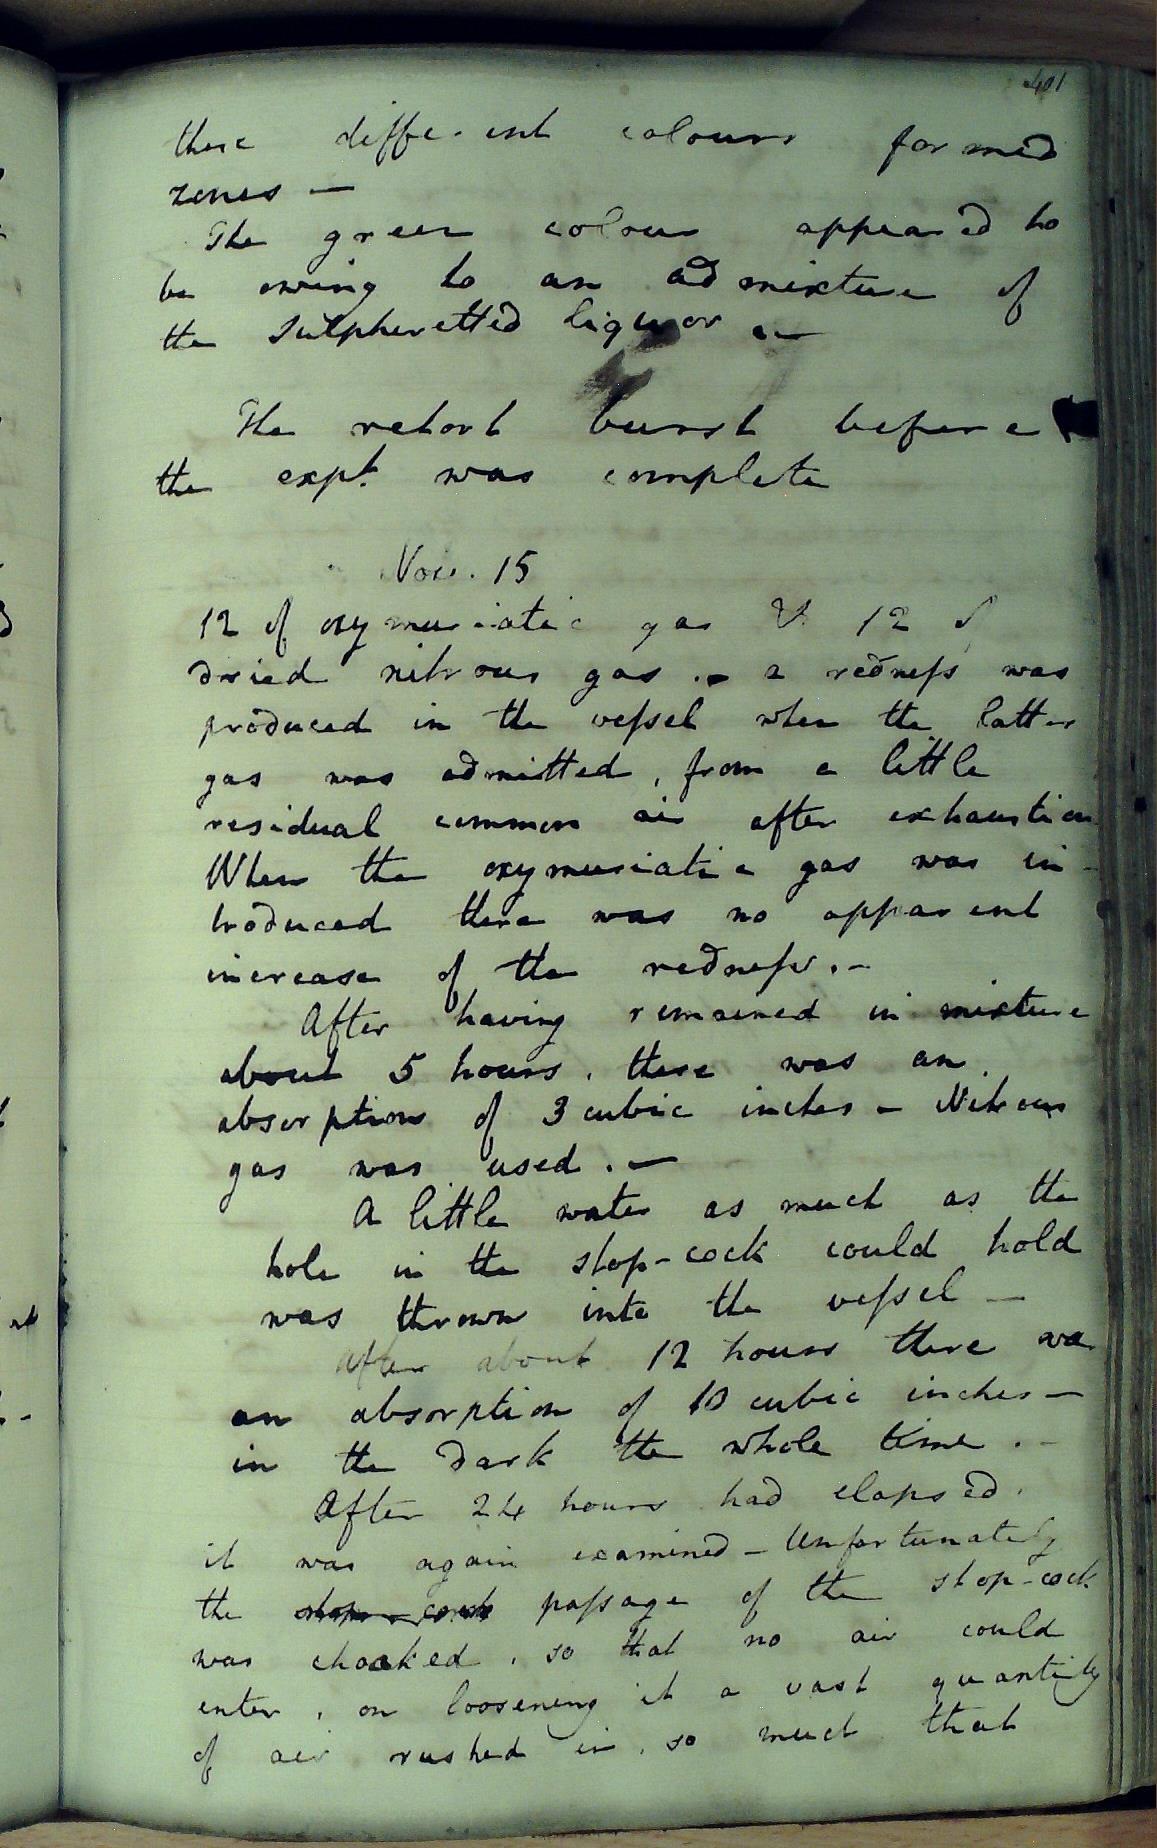 401
these different colours formed
zones —
The green colour appeared to
be owing to an admixture of
the Sulpheretted liquor —
The retort burst before
the expt. was complete
Nov. 15
12 of oxymuriatic gas & 12 of
dried nitrous gas . - a redness was
produced in the vessel when the latter
gas was admitted, from a little
residual common air after exhaustion
When the oxymuriatic gas was in-
troduced there was no apparent
increase of the redness. -
After having remained in mixture
about 5 hours, there was an
absorption of 3 cubic inches - Nitrous
gas was used. —
A little water as much as the
hole in the stop-cock could hold
was thrown into the vessel —
After about 12 hours there was
an absorption of 10 cubic inches —
in the dark the whole time . -
After 24 hours had elapsed.
it was again examined - Unfortunately
the stop-cock passage of the stop-cock
was choaked, so that no air could
enter, on loosening it a vast quantity
of air rushed in, so much that